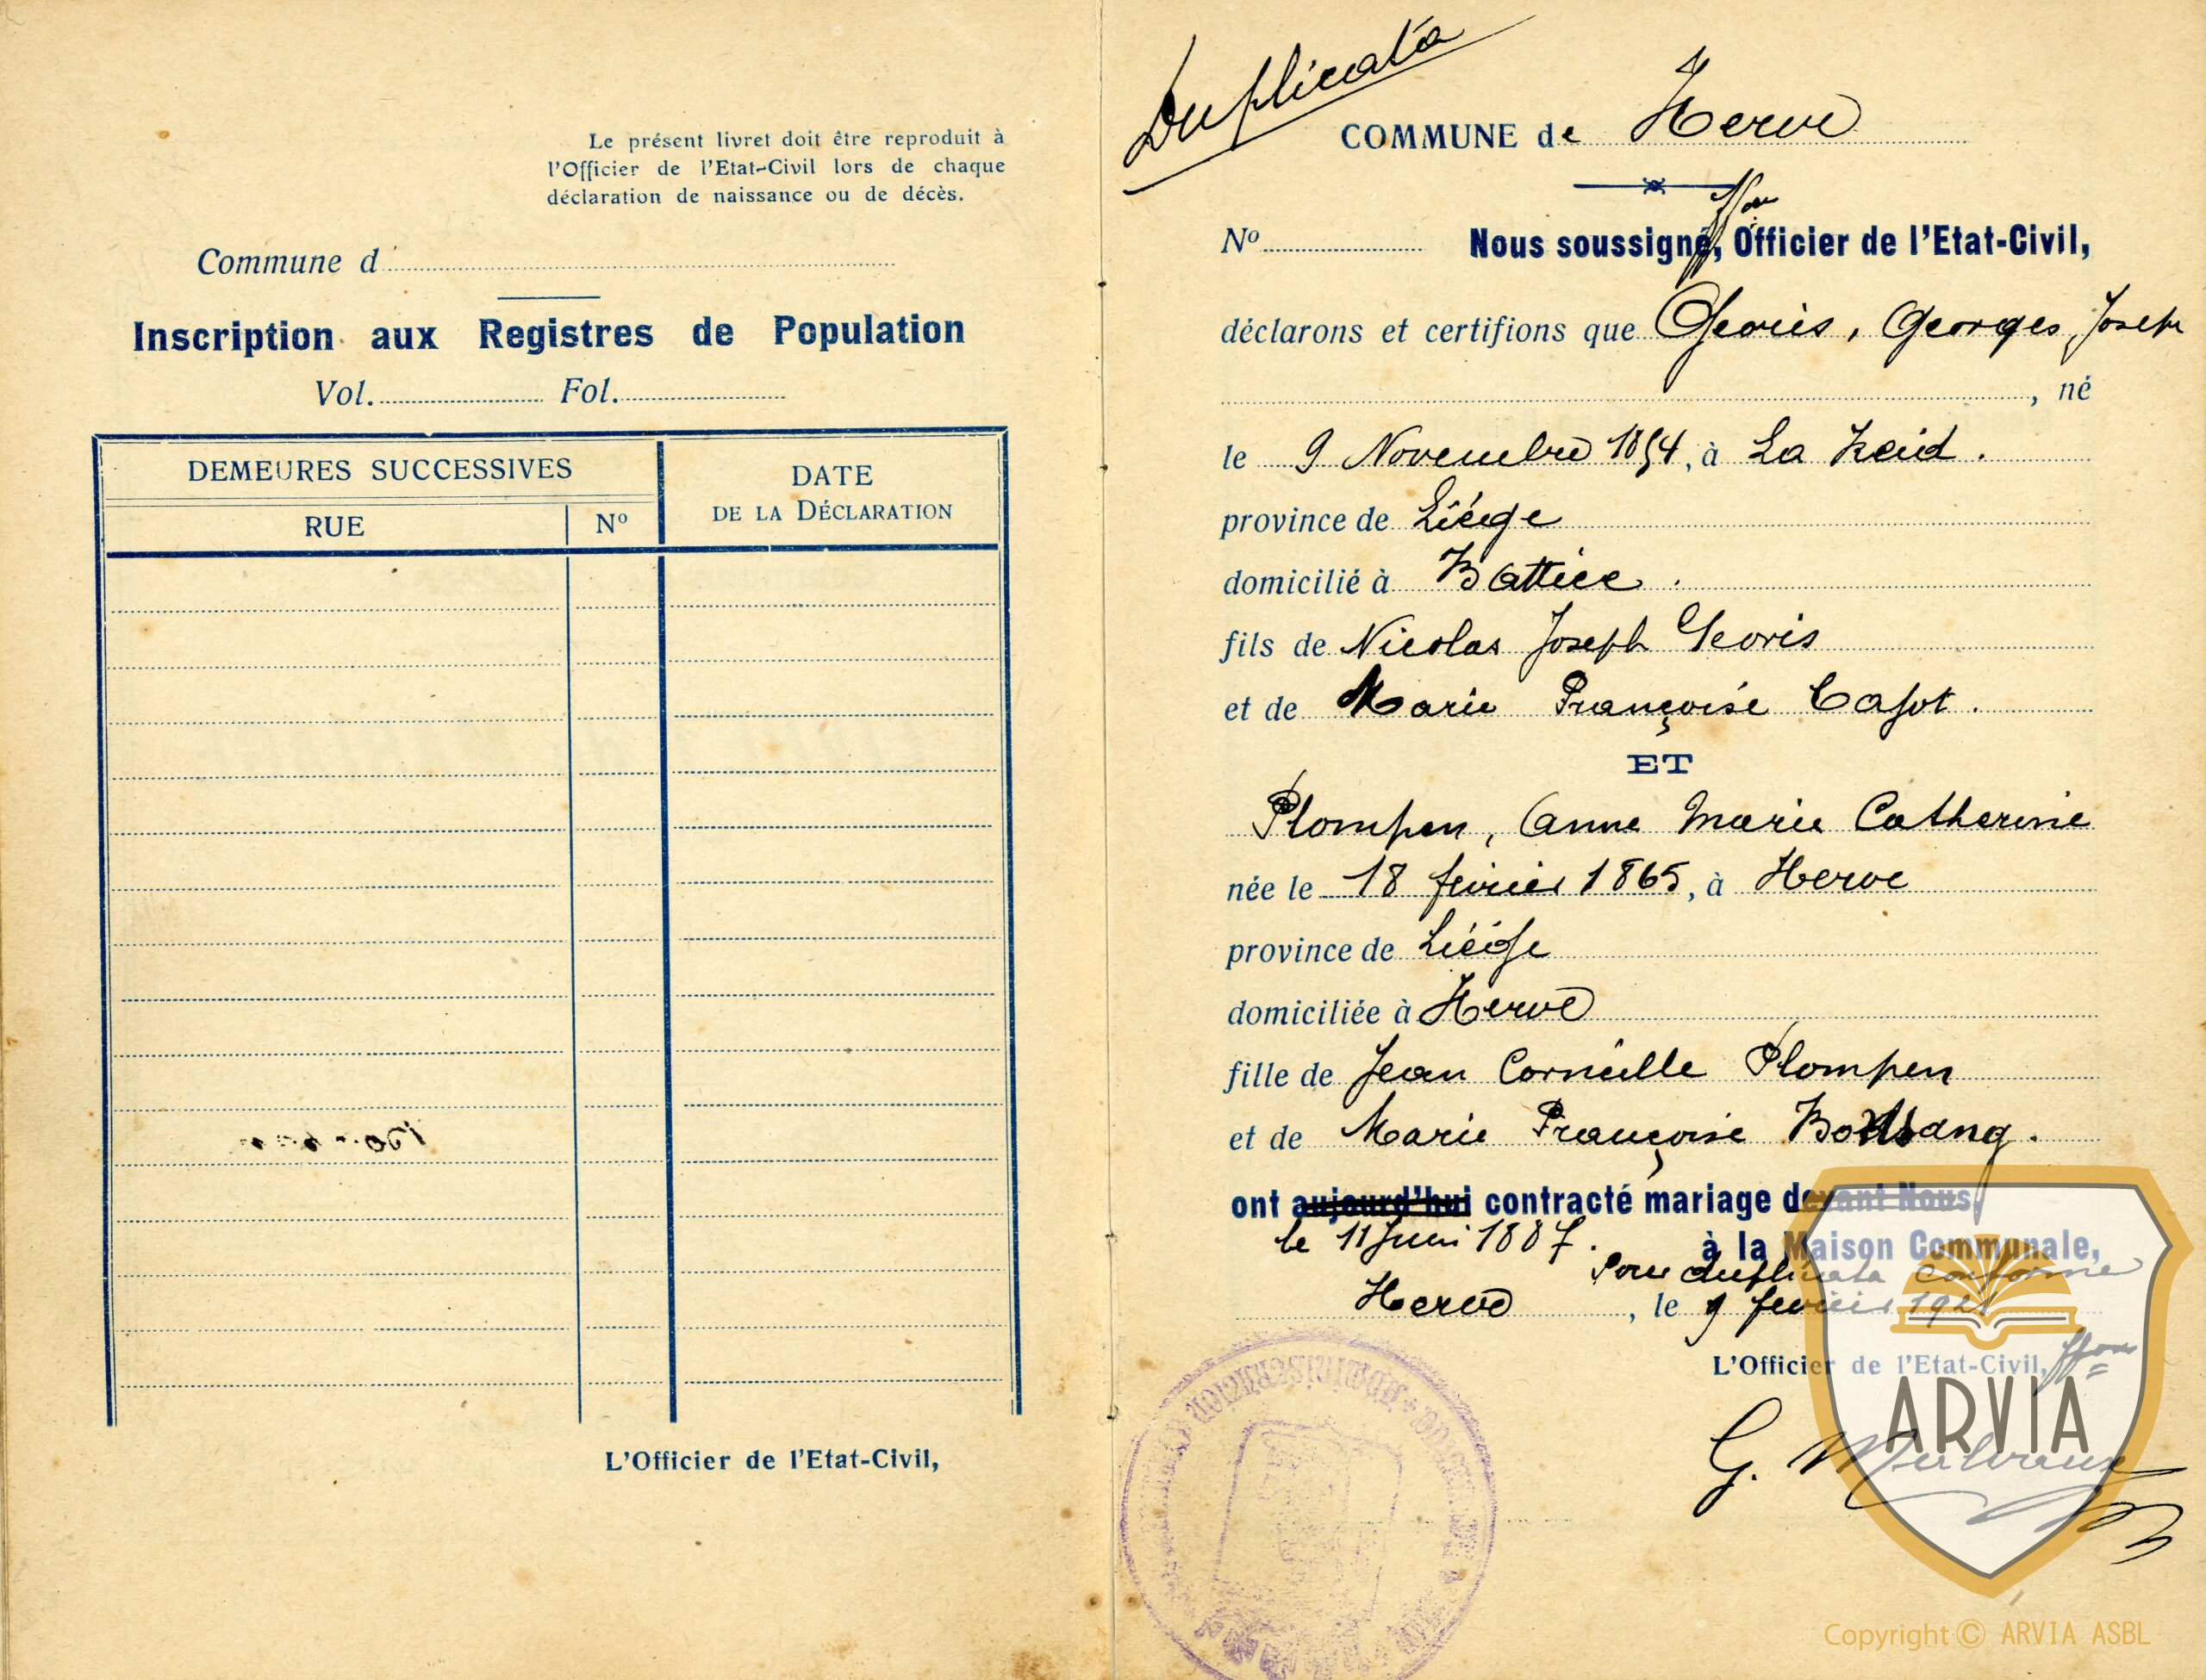 Le présent livret doit être reproduit à
l'Officier de l'Etat-Civil lors de chaque
déclaration de naissance ou de décès.
Commune d
Inscription aux Registres de Population
Vol. Fol.
DEMEURES SUCCESSIVES
DATE
DE LA DÉCLARATION
RUE
Nº
L'Officier de l'Etat-Civil,
Duplicata
COMMUNE de Herve
Nº Nous soussigné, Officier de l'Etat-Civil,
déclarons et certifions que Georis, Georges Joseph
, né
le 9 Novembre 1854, à La Reid.
province de Liége
domicilié à Battice.
fils de Nicolas Joseph Georis
et de Marie Françoise
ET
Plompen, Anne Marie Catherine
née le 18 février 1865, à Herve
province de Liége
domiciliée à Herve
fille de Jean Corneille Plompen
et de Marie Françoise
ont aujourd'hui contracté mariage devant Nous,
le 11 Juin 1887.
à la Maison Communale,
Pour duplicata conforme
Herve, le 9 février 1921
L'Officier de l'Etat-Civil,
G.
ARVIA
Copyright © ARVIA ASBL